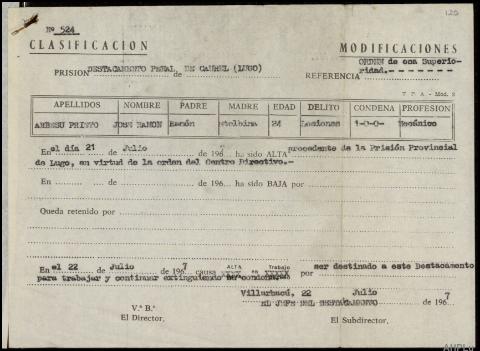 120
Nº 524
CLASIFICACION
MODIFICACIONES
PRISION DESTACAMENTO PENAL, DE CAUREL (LUGO)
de
REFERENCIA ORDEN de esa Superioridad.-
T P A - Mod. 2
APELLIDOS NOMBRE PADRE MADRE EDAD DELITO CONDENA PROFESION
ARBESU PRIETO JOSE RAMON Ramón Etelbina 24 Lesiones 1-0-0- Mecánico
En el día 21 de Julio de 196 ha sido ALTA procedente de la Prisión Provincial
de Lugo, en virtud de la orden del Centro Directivo.-
En de de 196 ha sido BAJA por
Queda retenido por
En el 22 de Julio de 1967 causa ALTA en Trabajo por ser destinado a este Destacamento
para trabajar y continuar extinguiendo su condena
Villarbacú, 22 Julio de 1967
EL JEFE DEL DESTACAMENTO
V.º B.º
El Director,
El Subdirector,